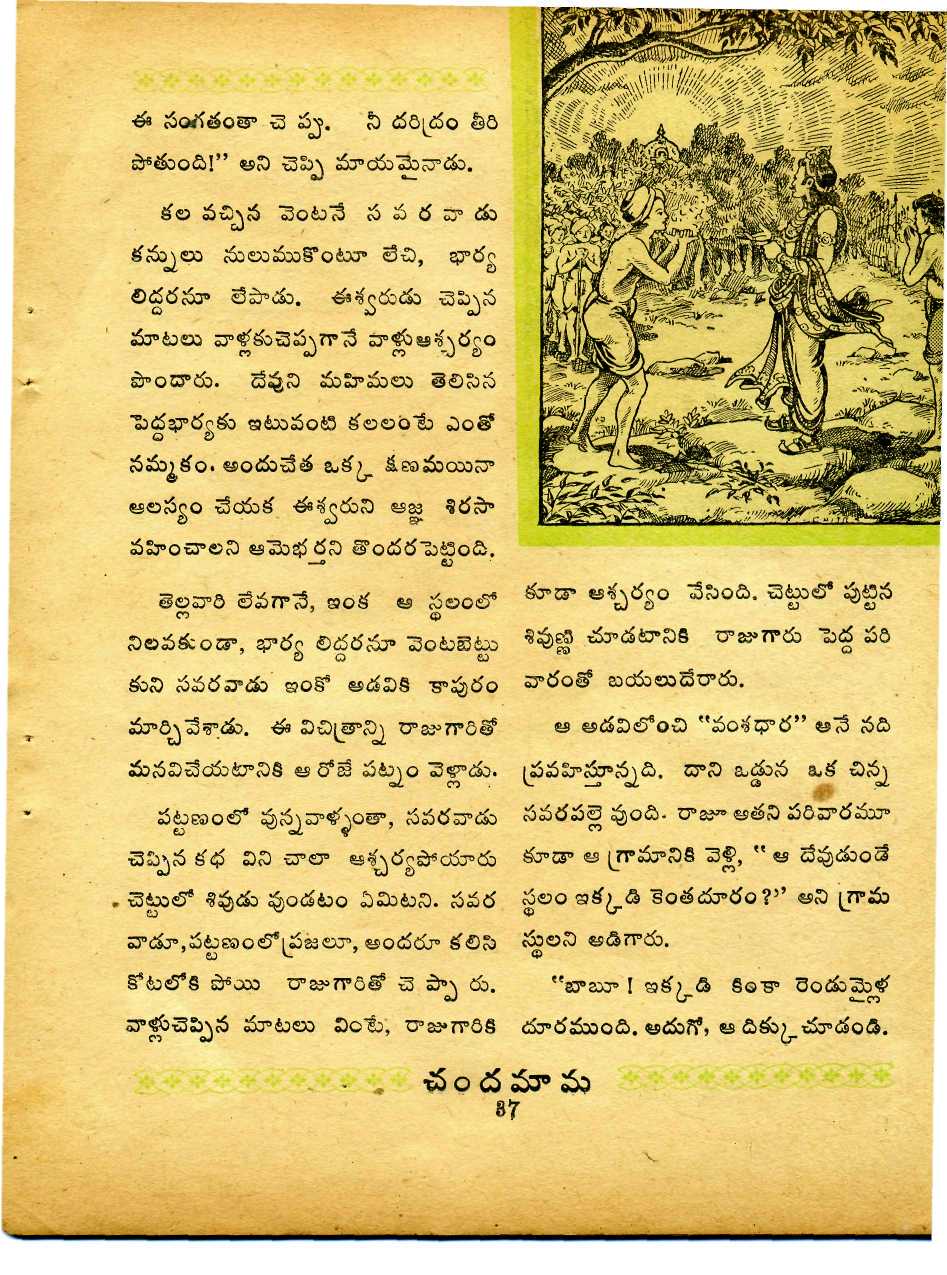 ఈ సంగతంతా చె ప్పు. నీ దరిద్రం తీరి
పోతుంది!" అని చెప్పి మాయమైనాడు.
కల వచ్చిన వెంటనే స వ ర వా డు
కన్నులు నులుముకొంటూ లేచి, భార్య
లిద్దరనూ లేపాడు. ఈశ్వరుడు చెప్పిన
మాటలు వాళ్లకుచెప్పగానే వాళ్లుఆశ్చర్యం
పొందారు. దేవుని మహిమలు తెలిసిన
పెద్దభార్యకు ఇటువంటి కలలంటే ఎంతో
నమ్మకం. అందుచేత ఒక్క క్షణమయినా
ఆలస్యం చేయక ఈశ్వరుని ఆజ్ఞ శిరసా
వహించాలని ఆమెభర్తని తొందరపెట్టింది.
తెల్లవారి లేవగానే, ఇంక ఆ స్థలంలో
నిలవకుండా, భార్య లిద్దరనూ వెంటబెట్టు
కుని సవరవాడు ఇంకో అడవికి కాపురం
మార్చివేశాడు. ఈ విచిత్రాన్ని రాజుగారితో
మనవిచేయటానికి ఆ రోజే పట్నం వెళ్లాడు.
పట్టణంలో వున్నవాళ్ళంతా, సవరవాడు
చెప్పిన కథ విని చాలా ఆశ్చర్యపోయారు
చెట్టులో శివుడు వుండటం ఏమిటని. సవర
వాడూ, పట్టణంలోప్రజలూ, అందరూ కలిసి
కోటలోకి పోయి రాజుగారితో చె ప్పా రు.
వాళ్లుచెప్పిన మాటలు వింటే, రాజుగారికి
కూడా ఆశ్చర్యం వేసింది. చెట్టులో పుట్టిన
శివుణ్ణి చూడటానికి రాజుగారు పెద్ద పరి
వారంతో బయలుదేరారు.
ఆ అడవిలోంచి "వంశధార" అనే నది
ప్రవహిస్తూన్నది. దాని ఒడ్డున ఒక చిన్న
సవరపల్లె వుంది. రాజూ అతని పరివారమూ
కూడా ఆ గ్రామానికి వెళ్లి, "ఆ దేవుడుండే
స్థలం ఇక్కడి కెంతదూరం?" అని గ్రామ
స్థులని అడిగారు.
"బాబూ! ఇక్కడి కింకా రెండుమైళ్ల
దూరముంది. అదుగో, ఆ దిక్కు చూడండి.
చందమామ
37